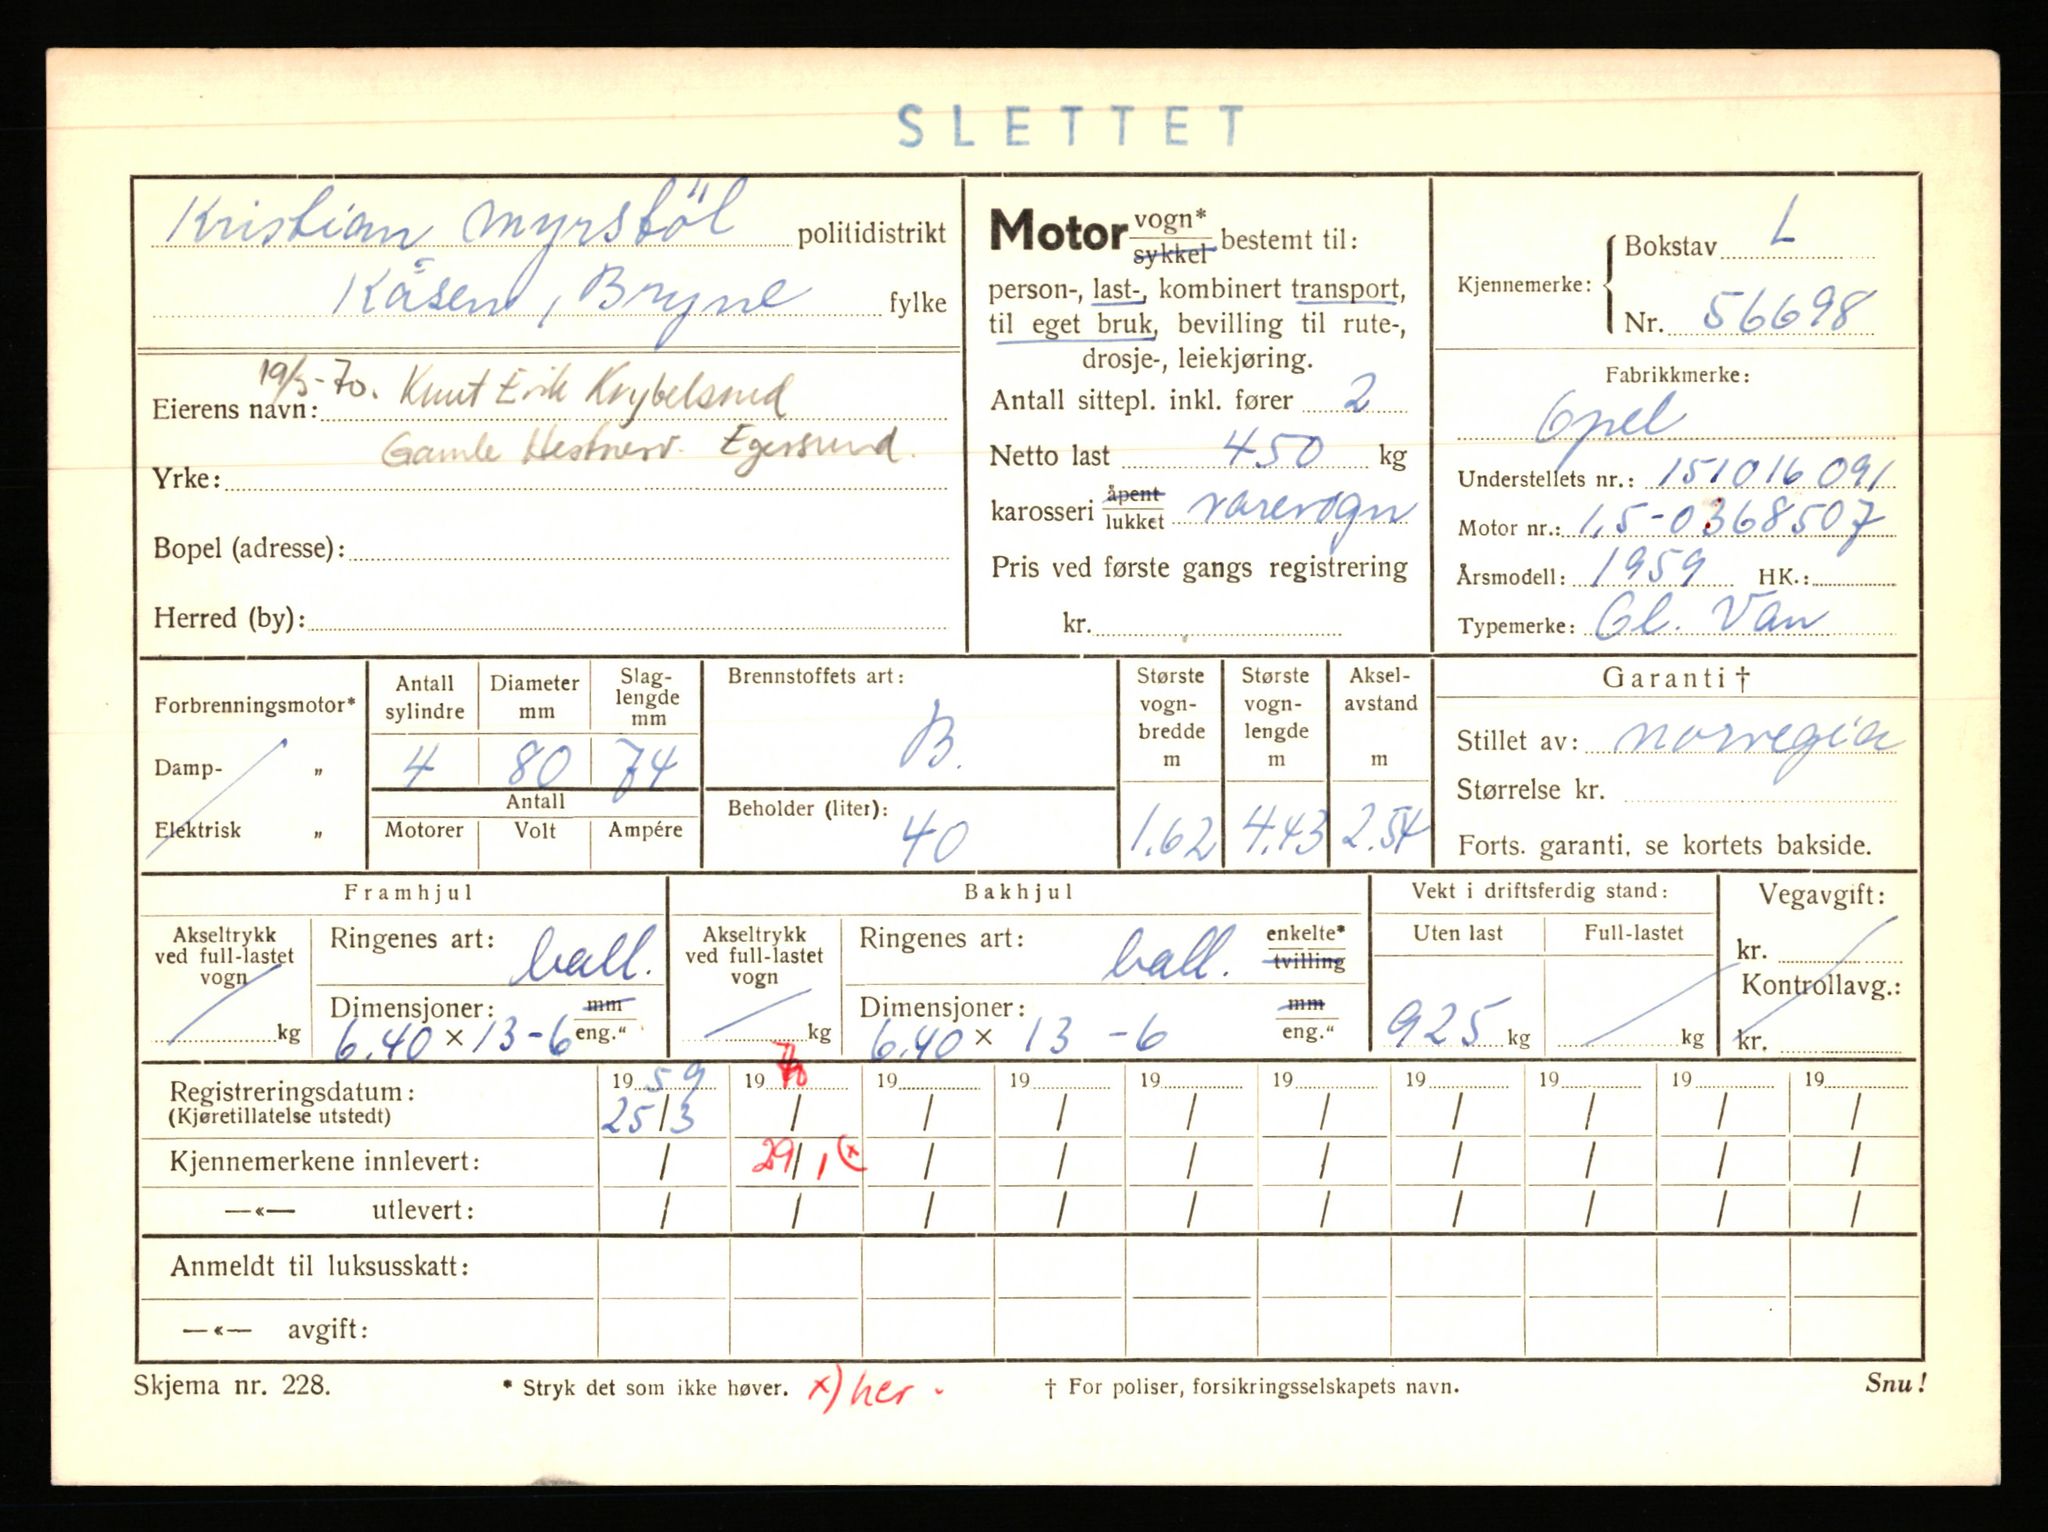 SLETTET
Kristian Myrstöl politidistrikt
Kåsen, Bryne fylke
19/3-70. Knut Erik
Eierens navn:
Gamle Egersund.
Yrke:
Bopel (adresse):
Herred (by):
Motor vogn* / sykkel bestemt til:
person-, last-, kombinert transport,
til eget bruk, bevilling til rute-,
drosje-, leiekjøring.
Antall sittepl. inkl. fører 2
Netto last 450 kg
karosseri åpent / lukket varevogn
Pris ved første gangs registrering
kr.
Kjennemerke: Bokstav L
Nr. 56698
Fabrikkmerke:
Opel
Understellets nr.: 151016091
Motor nr.: 1,5-0368507
Årsmodell: 1959 HK.:
Typemerke: Ol. Van
Forbrenningsmotor*
Damp- „
Elektrisk „
Antall sylindre Diameter mm Slag-lengde mm
4 80 74
Antall
Motorer Volt Ampére
Brennstoffets art:
B.
Beholder (liter):
40
Største vogn-bredde m Største vogn-lengde m Aksel-avstand m
1.62 4.43 2.54
Garanti †
Stillet av: Norvegia
Størrelse kr.
Forts. garanti, se kortets bakside.
Framhjul
Akseltrykk ved full-lastet vogn
kg
Ringenes art: ball.
Dimensjoner: mm / eng.“
6.40 × 13-6
Bakhjul
Akseltrykk ved full-lastet vogn
kg
Ringenes art: ball. enkelte* / tvilling
Dimensjoner: mm / eng.“
6.40 × 13 -6
Vekt i driftsferdig stand:
Uten last Full-lastet
925 kg kg
Vegavgift:
kr.
Kontrollavg.:
kr.
Registreringsdatum: 1959 1970 19 19 19 19 19 19 19 19
(Kjøretillatelse utstedt) 25/3 / / / / / / / / /
Kjennemerkene innlevert: / 29/1 (x / / / / / / / /
—«— utlevert: / / / / / / / / / /
Anmeldt til luksusskatt:
—«— avgift:
Skjema nr. 228. * Stryk det som ikke høver. x) her. † For poliser, forsikringsselskapets navn. Snu!